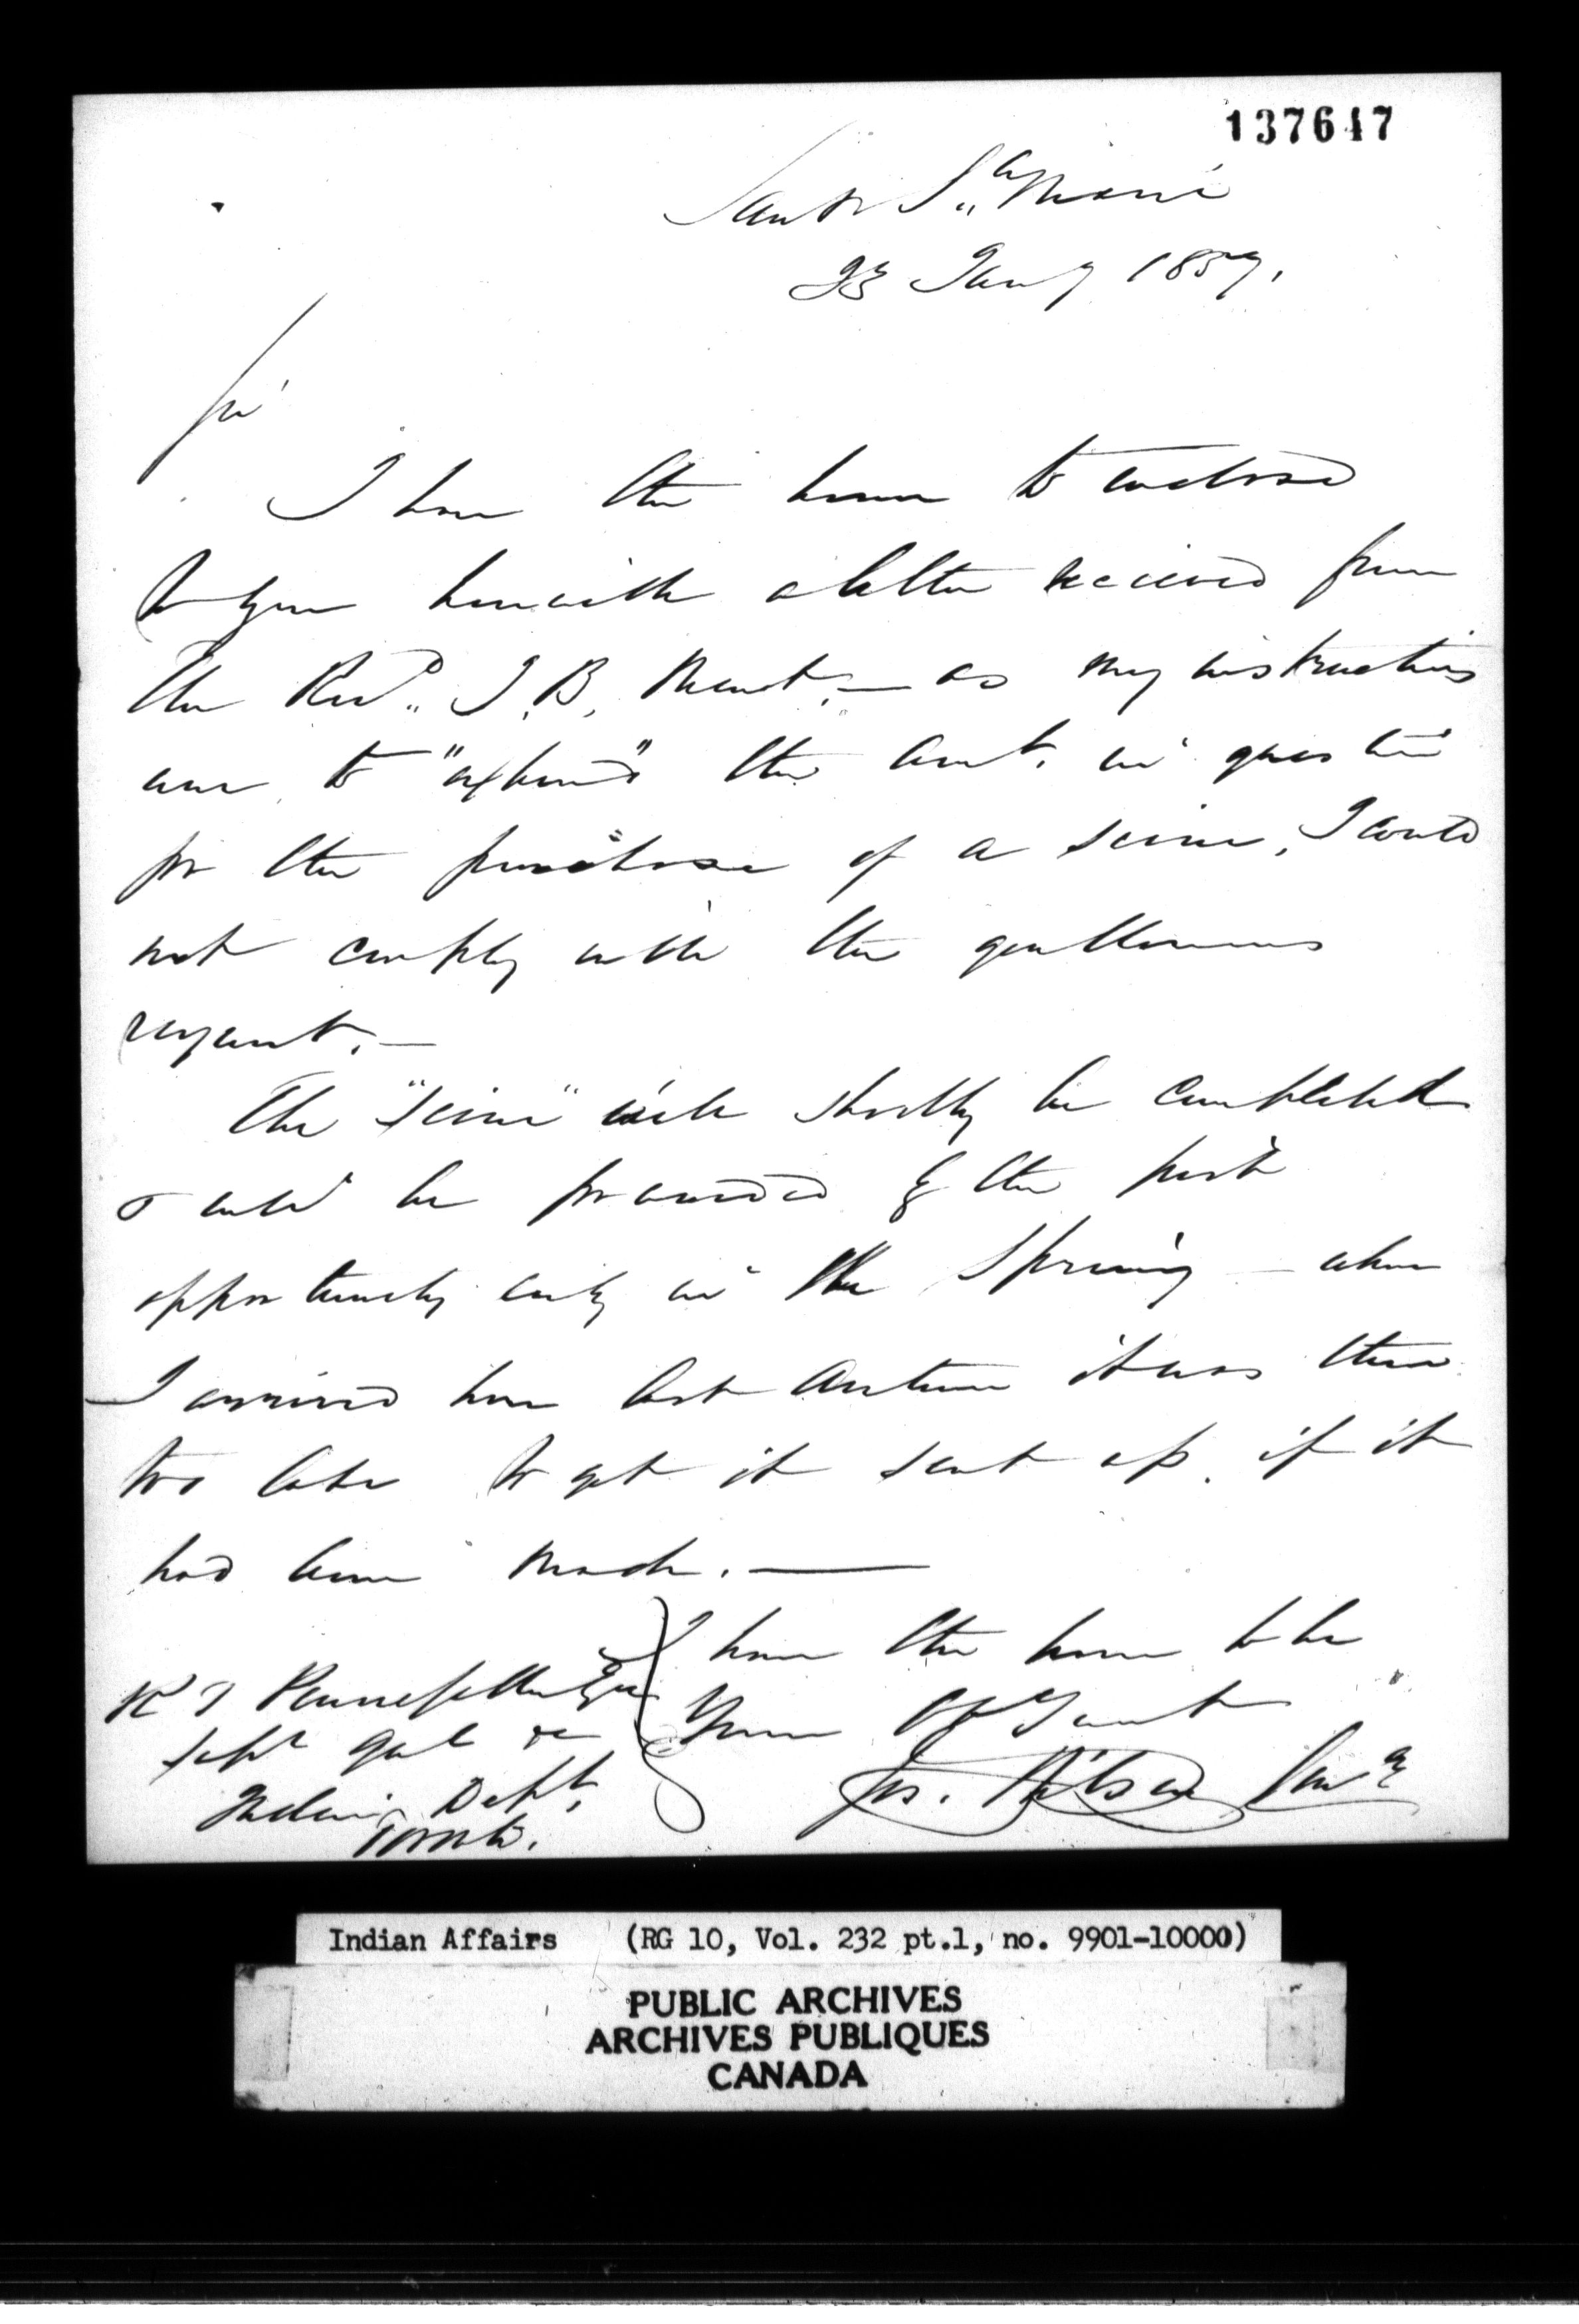 137647
Sault Ste Marie
23 Jany 1857.
Sir
I have the honor to enclose
to you herewith a letter received from
the Revd. J. B. — as my instructions
are to "expend" the amt. in question
for the purchase of a seine, I could
not comply with the gentlemans
request. —
The "seine" will shortly be completed
& will be forwarded by the first
opportunity early in the Spring — when
I arrived here last Autumn it was then
too late to get it sent up. if it
had been made. —
I have the honor to be
Your Ob Servt
Jos. Wilson
R T Pennefather Esqr
Supt Genl &c
Indian Dept,
Toronto.
Indian Affairs (RG 10, Vol. 232 pt.1, no. 9901-10000)
PUBLIC ARCHIVES
ARCHIVES PUBLIQUES
CANADA